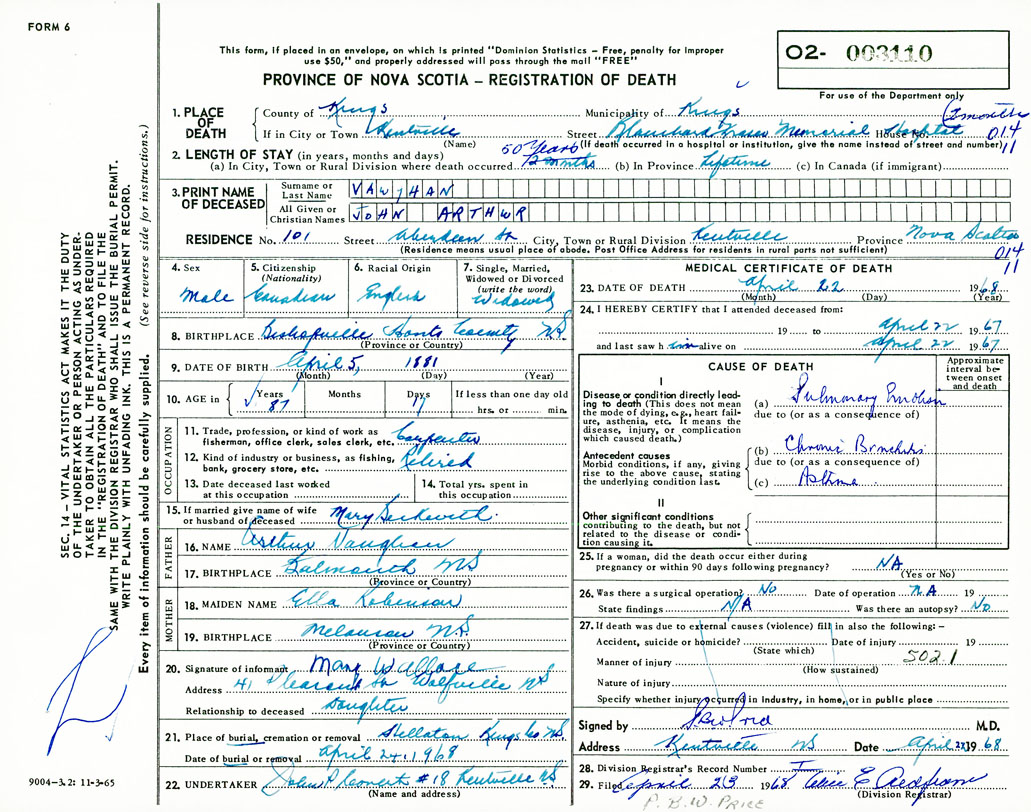 FORM 6
This form, if placed in an envelope, on which is printed "Dominion Statistics – Free, penalty for improper
use $50," and properly addressed will pass through the mail "FREE"
PROVINCE OF NOVA SCOTIA – REGISTRATION OF DEATH
O2- 003110
For use of the Department only
SEC. 14 – VITAL STATISTICS ACT MAKES IT THE DUTY
OF THE UNDERTAKER OR PERSON ACTING AS UNDER-
TAKER TO OBTAIN ALL THE PARTICULARS REQUIRED
IN THE "REGISTRATION OF DEATH" AND TO FILE THE
SAME WITH THE DIVISION REGISTRAR WHO SHALL ISSUE THE BURIAL PERMIT.
WRITE PLAINLY WITH UNFADING INK. THIS IS A PERMANENT RECORD.
Every item of information should be carefully supplied. (See reverse side for instructions.)
1. PLACE OF DEATH
County of Kings Municipality of Kings 2 months
If in City or Town Kentville Street Blanchard Fraser Memorial Hospital House No. 014
(Name) (If death occurred in a hospital or institution, give the name instead of street and number) 11
2. LENGTH OF STAY (in years, months and days) 50 Years
(a) In City, Town or Rural Division where death occurred 2 months (b) In Province Lifetime (c) In Canada (if immigrant)
3. PRINT NAME OF DECEASED
Surname or Last Name VAWJHAN
All Given or Christian Names JOHN ARTHWR
RESIDENCE No. 101 Street Aberdeen St City, Town or Rural Division Kentville Province Nova Scotia
(Residence means usual place of abode. Post Office Address for residents in rural parts not sufficient) 014
11
4. Sex Male
5. Citizenship (Nationality) Canadian
6. Racial Origin English
7. Single, Married, Widowed or Divorced (write the word) Widowed
8. BIRTHPLACE Bishopville Hants County NS
(Province or Country)
9. DATE OF BIRTH April 5, 1881
(Month) (Day) (Year)
10. AGE in Years 87 Months Days 17 If less than one day old hrs. or min.
OCCUPATION
11. Trade, profession, or kind of work as fisherman, office clerk, sales clerk, etc. Carpenter
12. Kind of industry or business, as fishing, bank, grocery store, etc. Retired
13. Date deceased last worked at this occupation
14. Total yrs. spent in this occupation
15. If married give name of wife or husband of deceased Mary Beckwith
FATHER
16. NAME Arthur Vaughan
17. BIRTHPLACE Falmouth NS
(Province or Country)
MOTHER
18. MAIDEN NAME Ella Robinson
19. BIRTHPLACE Melanson N.S.
(Province or Country)
20. Signature of informant Mary Wallace
Address 41 Pleasant St Wolfville NS
Relationship to deceased Daughter
21. Place of burial, cremation or removal Kings Co NS.
Date of burial or removal April 24, 1968
22. UNDERTAKER John R #18 Kentville NS
(Name and address)
MEDICAL CERTIFICATE OF DEATH
23. DATE OF DEATH April 22 1968
(Month) (Day) (Year)
24. I HEREBY CERTIFY that I attended deceased from:
19 to April 22 1967
and last saw him alive on April 22 1967
CAUSE OF DEATH
Approximate interval between onset and death
I
Disease or condition directly leading to death (This does not mean the mode of dying, e.g., heart failure, asthenia, etc. It means the disease, injury, or complication which caused death.)
(a) Pulmonary
due to (or as a consequence of)
Antecedent causes
Morbid conditions, if any, giving rise to the above cause, stating the underlying condition last.
(b) Chronic Bronchitis
due to (or as a consequence of)
(c) Asthma
II
Other significant conditions
contributing to the death, but not related to the disease or condition causing it.
25. If a woman, did the death occur either during pregnancy or within 90 days following pregnancy? NA
(Yes or No)
26. Was there a surgical operation? No Date of operation N.A 19
State findings N/A Was there an autopsy? No
27. If death was due to external causes (violence) fill in also the following: –
Accident, suicide or homicide? Date of injury 19
(State which)
Manner of injury 502.1
(How sustained)
Nature of injury
Specify whether injury occurred in industry, in home, or in public place
Signed by M.D.
Address Kentville NS Date April 23 1968
28. Division Registrar's Record Number
29. Filed April 23 1968
(Division Registrar)
P.B.W. PRICE
9004–3.2: 11-3-65